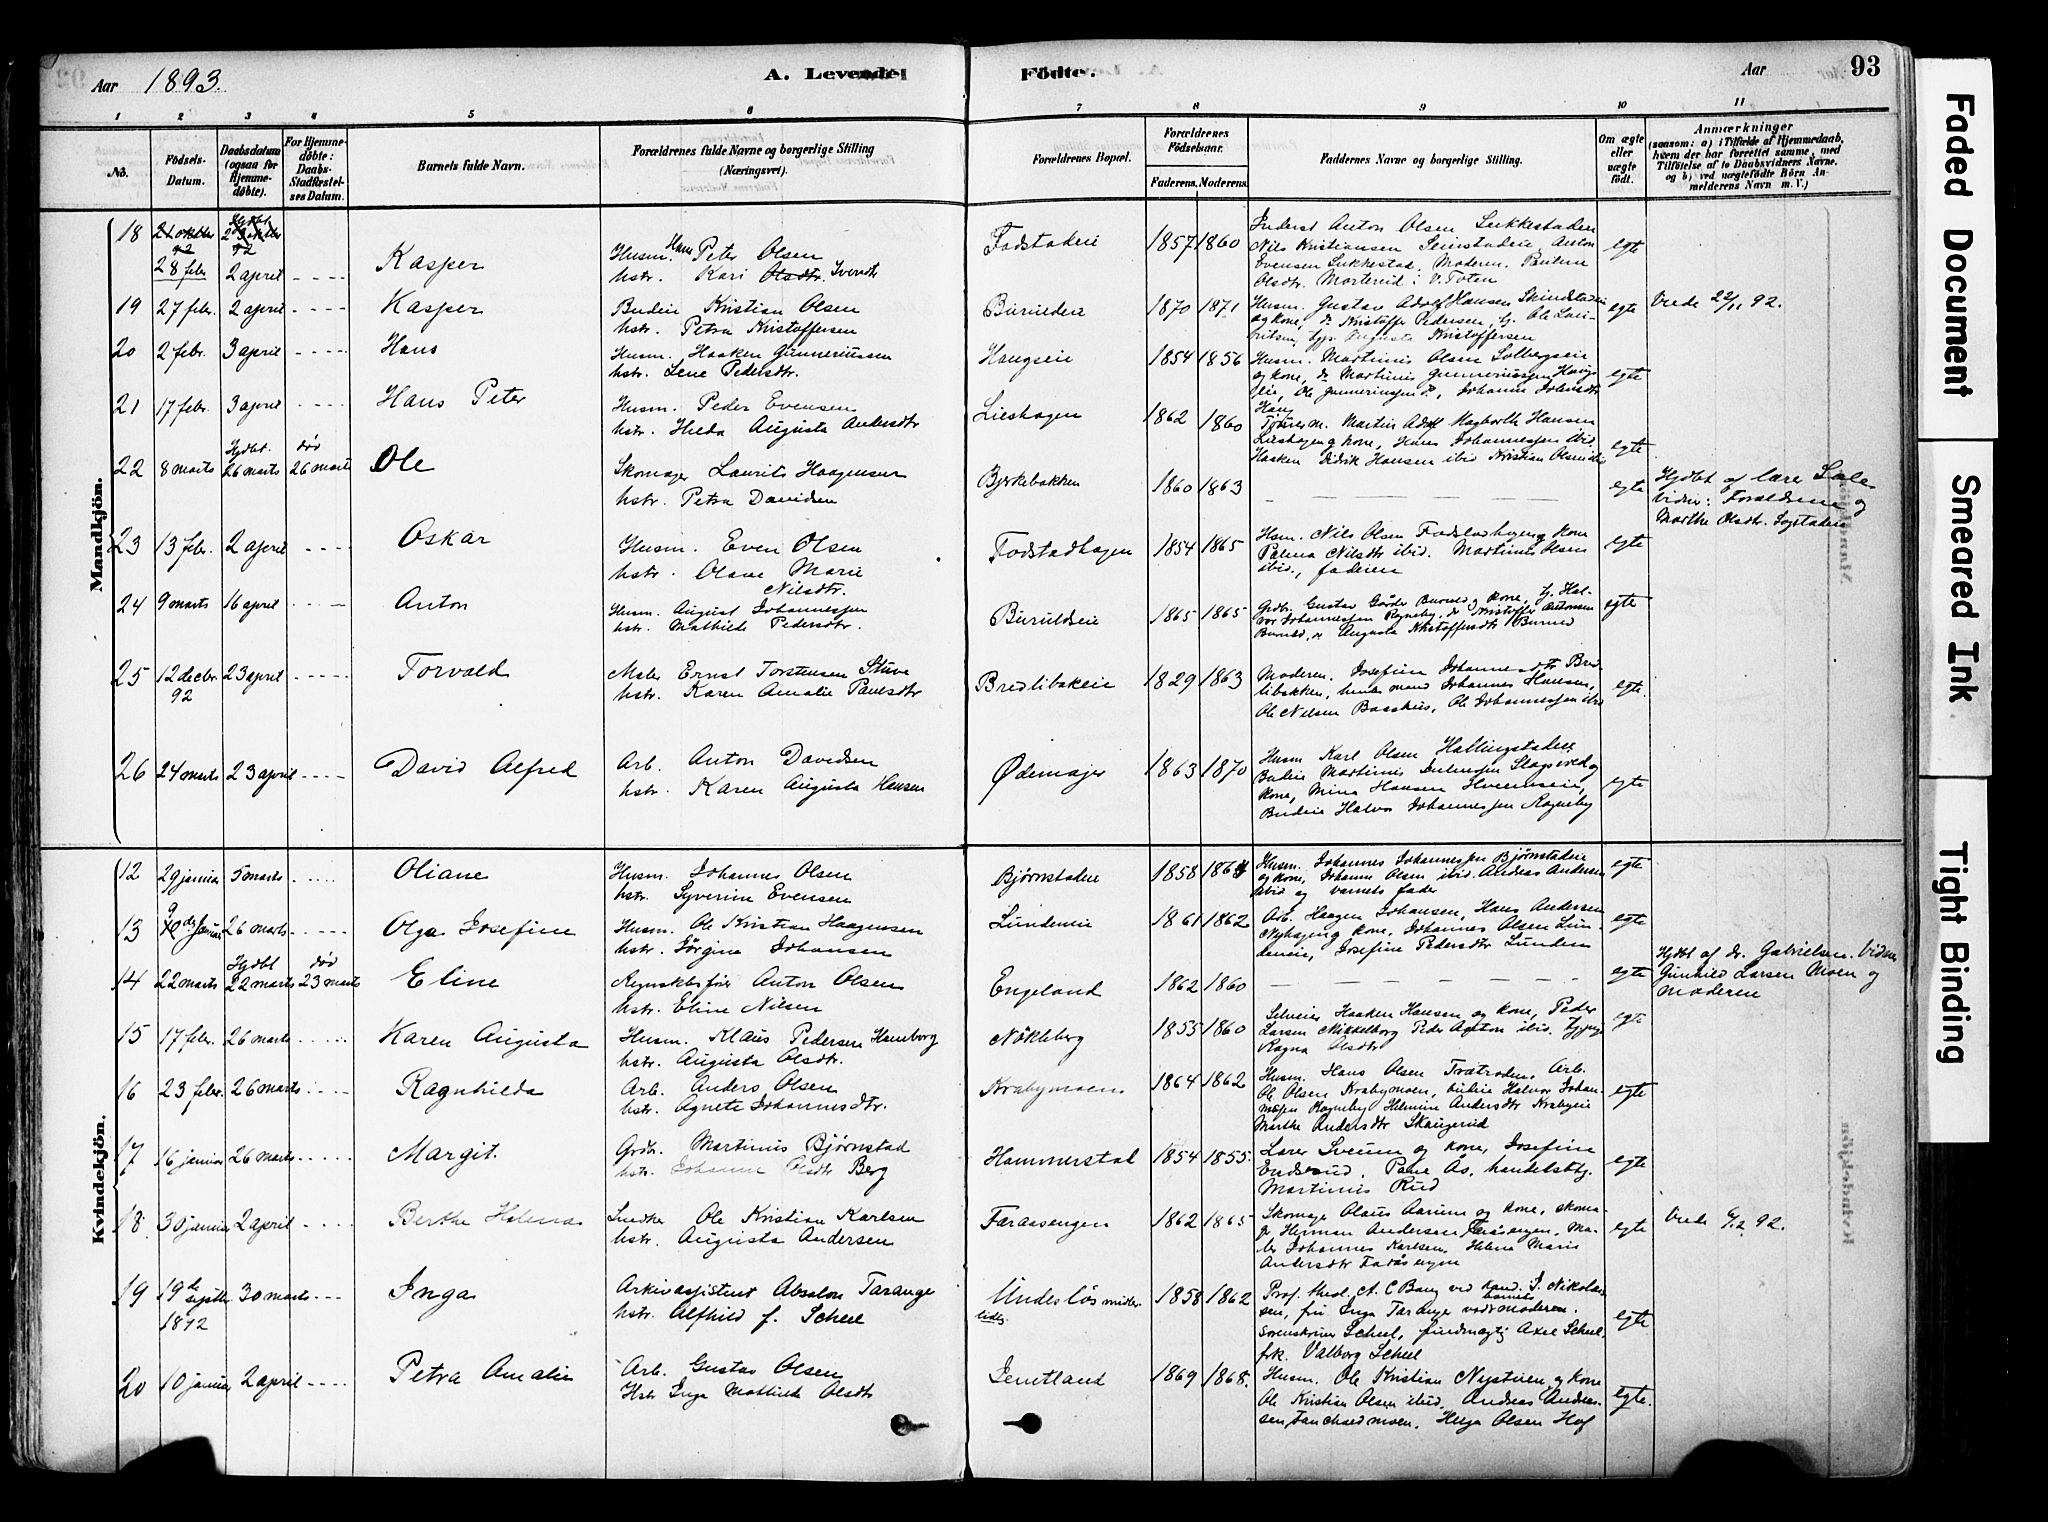 Aar 1893.
A. Levende
Födte.
Aar
93
1 2 3 4 5 6 7 8 9 10 11
No.
Födsels-
Datum.
Daabsdatum
(ogsaa for
Hjemme-
döbte).
For Hjemme-
döbte:
Daabs-
Stadfæstel-
ses Datum.
Barnets fulde Navn.
Forældrenes fulde Navne og borgerlige Stilling
(Næringsvei).
Forældrenes Bopæl.
Forældrenes
Födselsaar.
Faderens. Moderens.
Faddernes Navne og borgerlige Stilling.
Om ægte
eller
uægte
födt.
Anmærkninger
(saasom: a) i Tilfælde af Hjemmedaab,
hvem der har forrettet samme, med
Tilföielse af to Daabsvidners Navne,
og b) ved uægtefödte Börn An-
melderens Navn m. V.)
Mandkjön.
18 21 oktbr 92 28 febr 2 april Kasper
Husm. Hans Peter Olsen
hstr. Kari Olsdtr. Iversdtr
Fodstadeie 1857 1860
Inderst Anton Olsen Sukkestadeie
Nils Kristiansen Seierstadeie, Anton
Evensen Sukkestad, Moderen, Pauline
Olsdtr. Mortervid i V. Toten
egte
19 27 febr. 2 april Kasper
Budeie Kristian Olsen
hstr. Petra Kristoffersen
Buruldeie 1870 1871
Husm. Gustav Adolf Hansen Skindstadeie
og kone, Kristoffer Pedersen, Ole Lau-
ritsen, Augusta Kristoffersen
egte Viede 22/1 92.
20 2 febr. 3 april Hans
Husm. Haaken Gunneriussen
hstr. Lene Pedersdtr.
Haugseie 1854 1856
Husm. Martinus Olsen Solbergseie
og kone, Martinus Gunneriussen Haugs-
eie, Ole Gunneriussen, Johanne Johansdtr
Haug
egte
21 17 febr. 3 april Hans Peter
Husm. Peder Evensen
hstr. Hilda Augusta Andersdtr
Lieshagen 1862 1860
Tømrerm. Martin Adolf Hagbarth Hansen
Lieshagen og kone, Hans Johannessen ibid.
Haaken Didrik Hansen ibid Kristian Olsen
egte
22 8 marts Hjdbt. 26 marts død 26 marts Ole
Skomager Laurits Haagensen
hstr. Petra Davidsen
Byrkebakken 1860 1863
egte
Hjdbt af lærer Sole
Vidner: Forældrene og
Marthe Olsdtr. Sogstadeie
23 13 febr. 2 april Oskar
Husm. Even Olsen
hstr. Olave Marie
Nilsdtr.
Fodstadhagen 1854 1865
Hsm. Nils Olsen Fodstadhagen og kone
Palma Nilsdtr ibid. Martinus Olsen
ibid., faderen
egte
24 9 marts 16 april Anton
Husm. August Johannessen
hstr. Mathilde Pedersdtr.
Buruldseie 1865 1865
Grdbr. Gustav Gårder Buruld og kone, Hal-
vor Johannessen Rogneby, Kristoffer Antonsen
Buruld, Augusta Kristoffersdtr Buruld
egte
25 12 decbr 92 23 april Torvald
Maler Ernst Torstensen Stuve
hstr. Karen Amalie Paulsdtr
Bredlibakeie 1829 1863
Moderen. Josefine Johannesdtr Bred-
libakken, hendes mand Johannes Hansen,
Ole Nilsen Baashus, Ole Johannessen ibid
egte.
26 24 marts 23 april David Alfred
Arb. Anton Davidsen
hstr. Karen Augusta Hansen
Ødemager 1863 1870
Husm Karl Olsen Hallingstadeie
Budeie Martinus Slagsved og
kone, Mina Hansen Hveemseie,
Budeie Halvor Johannessen Rogneby
egte
Kvindekjön.
12 29 januar 5 marts Oliane
Husm. Johannes Olsen
hstr. Syverine Evensen
Bjørnstadeie 1858 1864
Husm. Johannes Johannessen Bjørnstadeie
og kone, Johanne Olsen ibid. Andreas Andersen
ibid og barnets fader
egte
13 9 januar 26 marts Olga Josefine
Husm. Ole Kristian Haagensen
hstr. Jørgine Johansen
Lundeneie 1861 1862
Arb. Haagen Johansen, Hans Andersen
Nyhagen og kone, Johannes Olsen Lun-
deneie, Josefine Pedersdtr Lunden
egte
14 22 marts Hjdbt 22 marts død 23 marts Eline
Regnskabsfører Anton Olsen
hstr. Eline Nilsen
Engeland 1862 1860
egte
Hjdbt af dr. Gabrielsen. Vidner
Gunhild Larsen Moen og
moderen
15 17 febr. 26 marts Karen Augusta
Husm. Klaus Pedersen Haneborg
hstr. Augusta Olsdtr.
Nökleberg 1855 1860
Selveier Haaken Hansen og kone, Peder
Larsen Nikkelborg Peder Anton ibid.
Ragna Olsdtr
egte
16 23 febr. 26 marts Ragnhilda
Arb. Anders Olsen
hstr. Agnete Johannesdtr.
Krabymoen 1864 1862
Husm. Hans Olsen Trætroden, Arb.
Ole Olsen Krabymoen, budeie Halvor Johan-
nessen Rogneby, Helmine Andersdtr Krabyeie
Marthe Andersdtr Skaugerud
egte
17 16 januar 26 marts Margit.
Grdbr. Martinus Bjørnstad
hstr. Johanne Olsdtr Berg
Hammerstad 1854 1855.
Lærer Sveum og kone, Josefine
Enderud, Pane Ås, handelsbtj.
Martinus Rud
egte
18. 30 januar 2 april Berthe Helena
Snedker Ole Kristian Karlsen
hstr. Augusta Andersen
Faraasengen 1862 1865
Skomager Olaus Aarum og kone, skoma-
ger Herman Andersen Faråsengen, Ma-
ler Johannes Karlsen, Helene Marie
Andersdtr Faråsengen
egte Viede 6/2 92.
19 19de septbr 1892 30 marts Inga
Arkivassistent Absalon Taranger
hstr. Alfhild f. Scheel
Undeslös midler-
tidig. 1858 1862
Prof. theol. A. C Bang ved kand. S. Nikolai-
sen, fru Inga Taranger ved moderen.
Sorenskriver Scheel, fuldmægtig Axel Scheel.
frk. Valborg Scheel
egte
20 10 januar 2 april Petra Amalie
Arb. Gustav Olsen
Hstr Inga Mathilde Olsdtr
Jemtland 1869 1868.
Husm. Ole Kristian Nystuen og kone
Ole Kristian Olsen ibid, Andreas Andrea-
sen, Helga Olsen Hof
egte.
Faded Document
Smeared Ink
Tight Binding